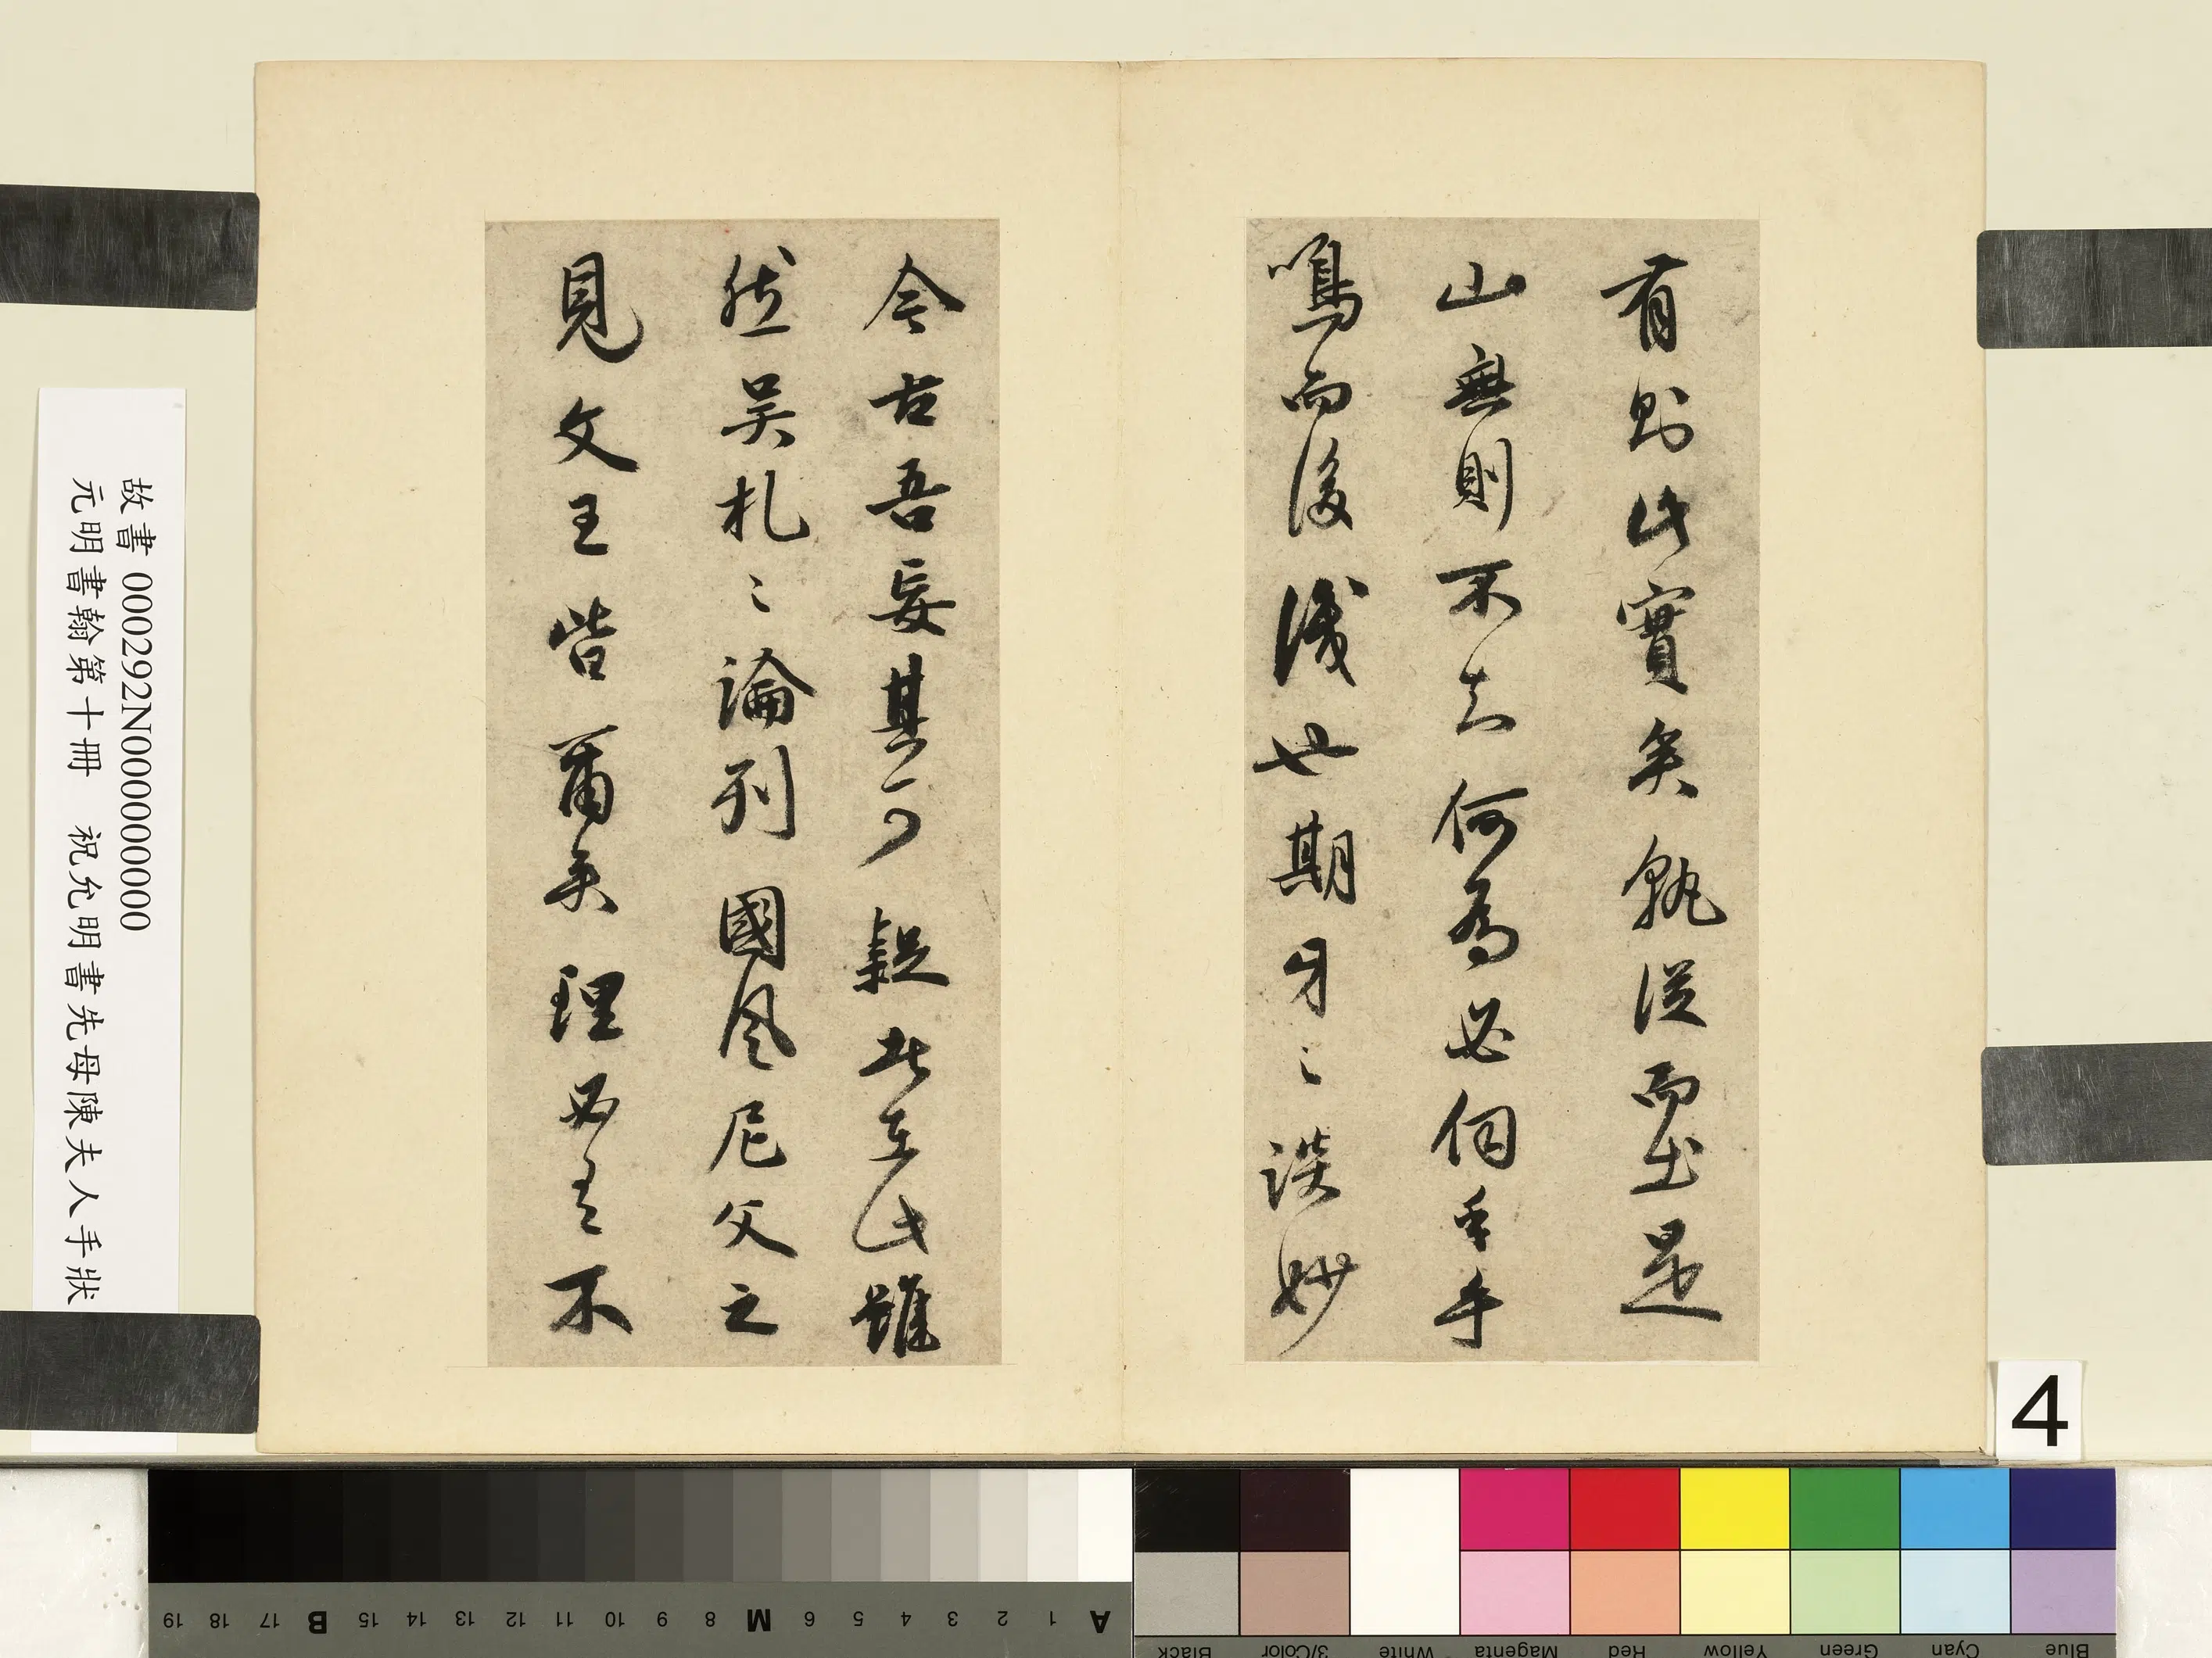 有則此實矣孰從而出是
山無則不知何為必伺乎手
鳴而後識也期牙之談妙
今古吾妄其可疑者在此雖
然吳札之論列國風尼父之
見文王皆爾矣理必有不
故書 000292N000000000
元明書翰第十冊 祝允明書先母陳夫人手狀
4
19 18 17 B 15 14 13 12 11 10 9 8 M 6 5 4 3 2 1 A
Black 3/Color White Magenta Red Yellow Green Cyan Blue